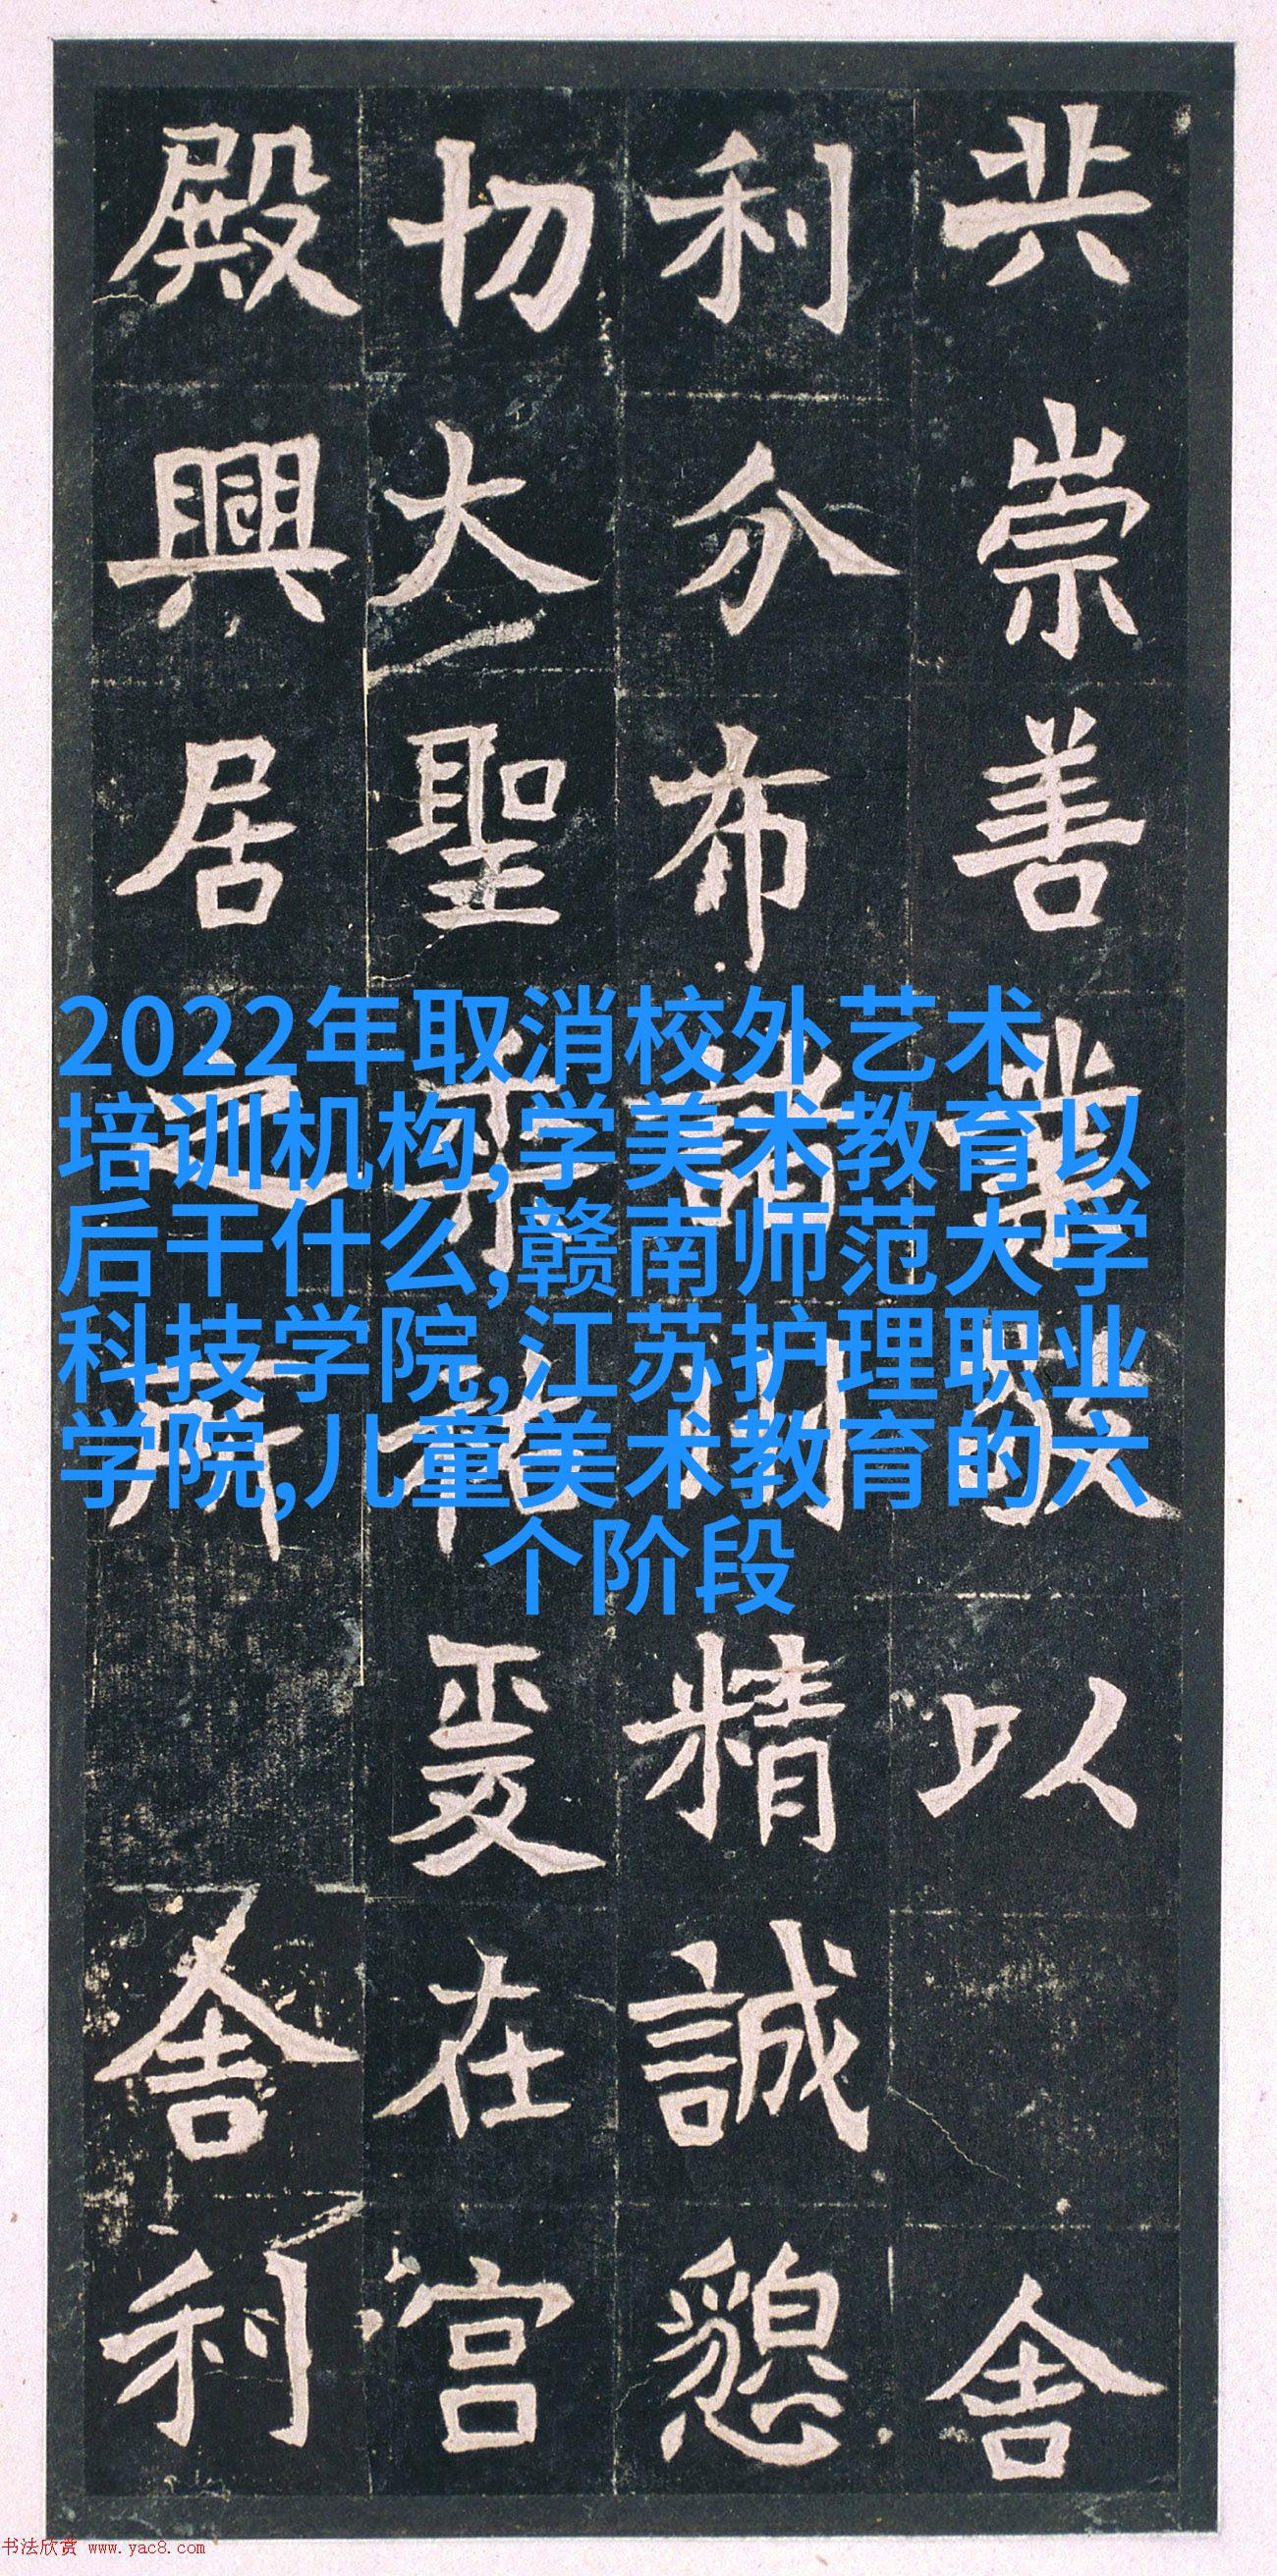 共崇善業敬以舍
利分布諸州精誠懇
切大聖垂祐爰在宫
殿興居之所舍利
2022年取消校外艺术
培训机构,学美术教育以
后干什么,赣南师范大学
科技学院,江苏护理职业
学院,儿童美术教育的六
个阶段
书法欣赏 www.yac8.com